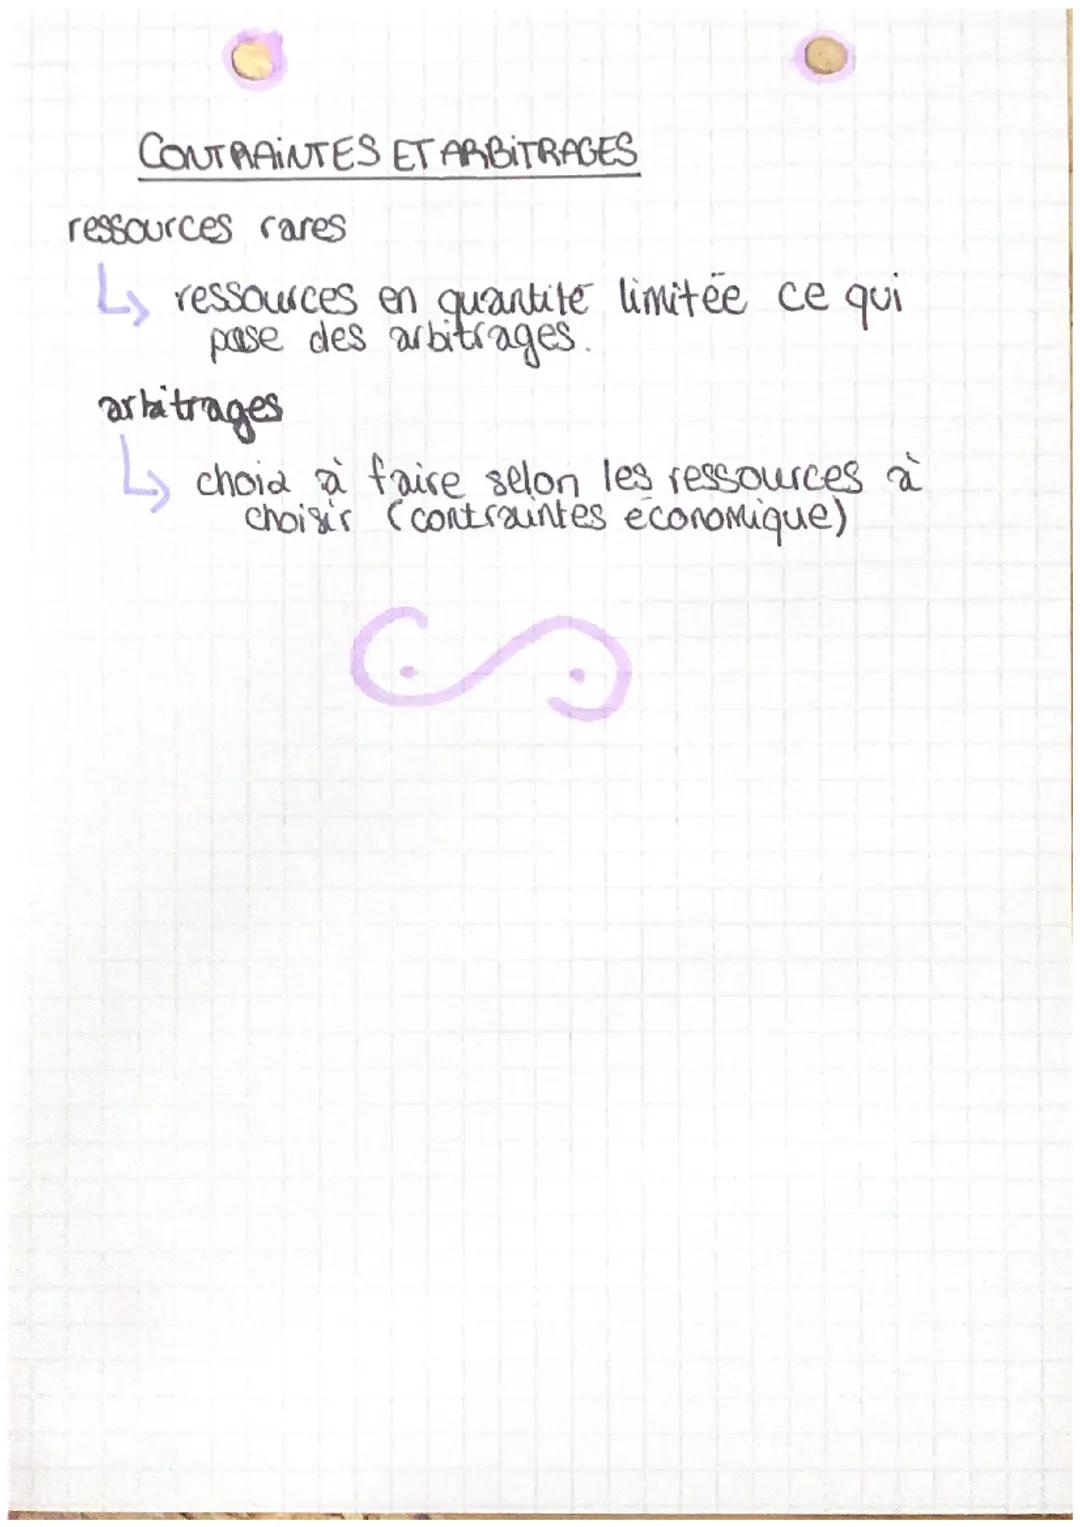 CONTRAINTES ET ARBITRAGES
ressources rares
ressources en quantité limitée ce qui
pose des arbitrages.
arbitrages
choix à faire selon les ressources à
choisir (contraintes économique)